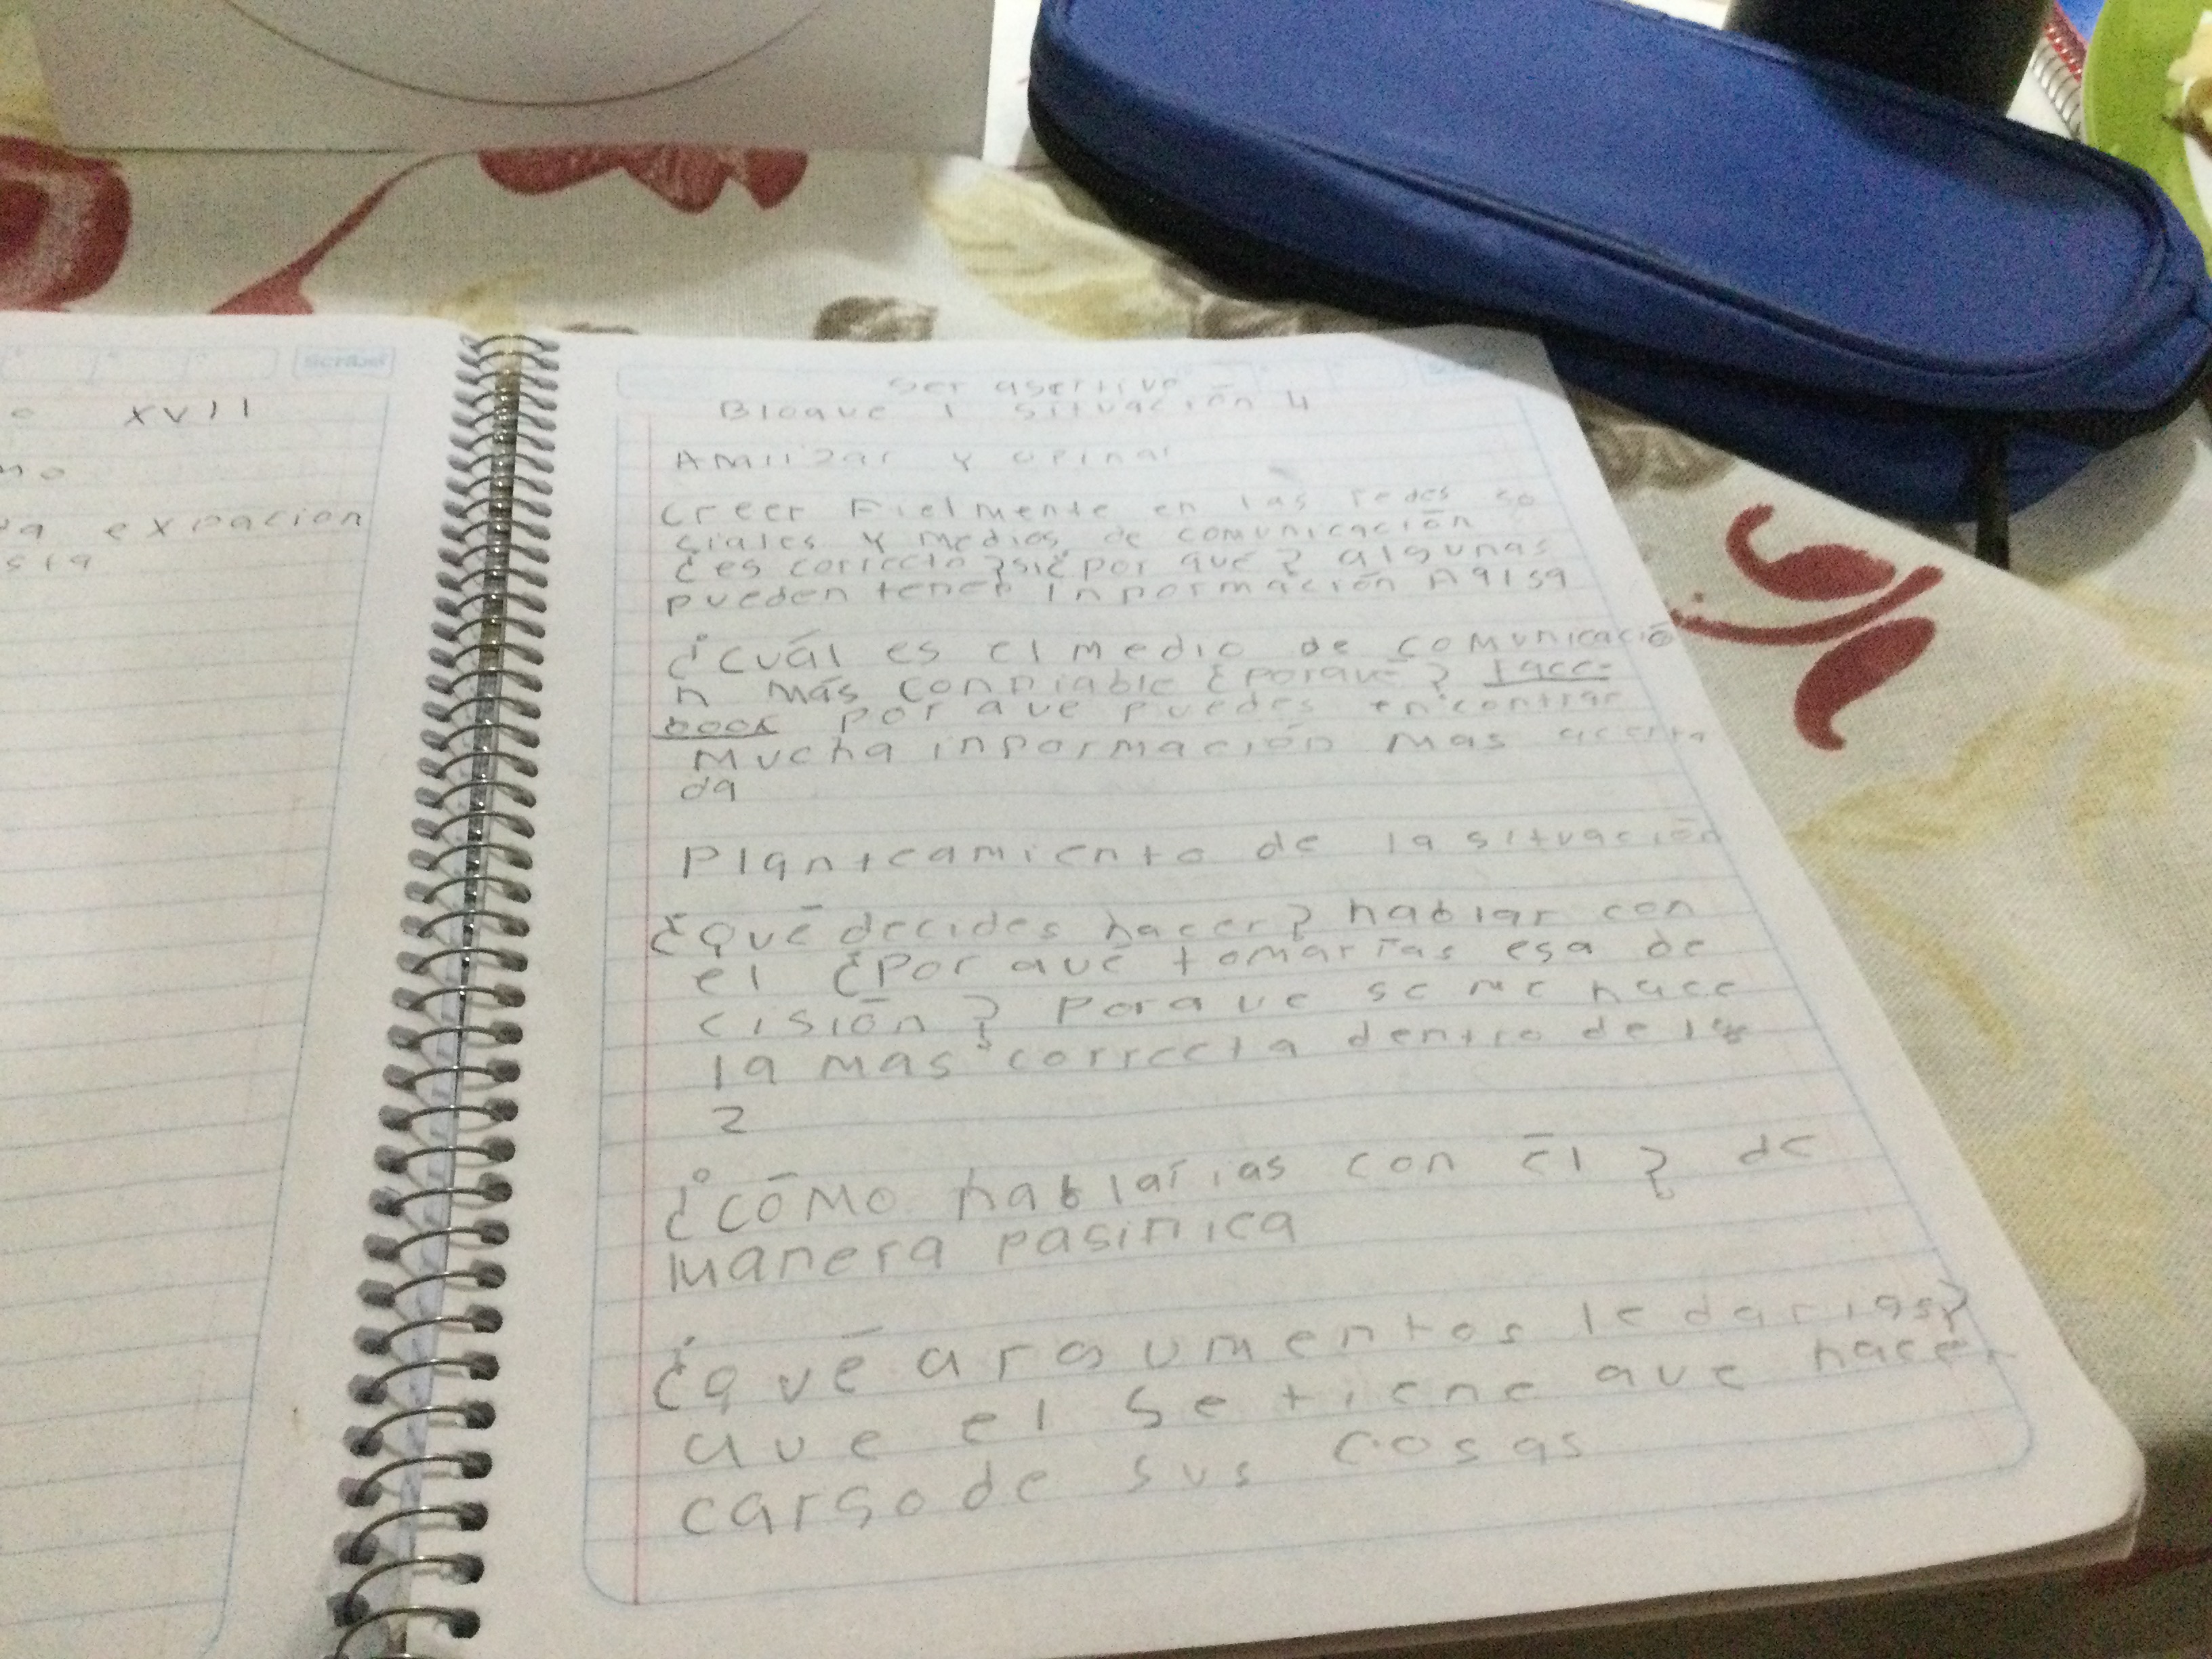 xvii
mo
expacion
sta
Scribe
ser asertivo
Bloque 1 situación 4
Amlizar y opinar
creer Fielmente en las redes so
siales y medios de comunicación
¿es correcto? si ¿por qué? algunas
pueden tener informaciión falsa
¿cuál es el medio de comunicació
n más confiable ¿porque? face-
book porque puedes encontrar
mucha información mas acerta
da
Planteamiento de la situación
¿Qué decides hacer? hablar con
el ¿Por qué tomarías esa de
cisión? Porque se me hace
la mas correcta dentro de la
2
¿cómo hablarías con él? de
manera pasifica
¿qué argumentos le darías?
que el se tiene que hacer
cargo de sus cosas